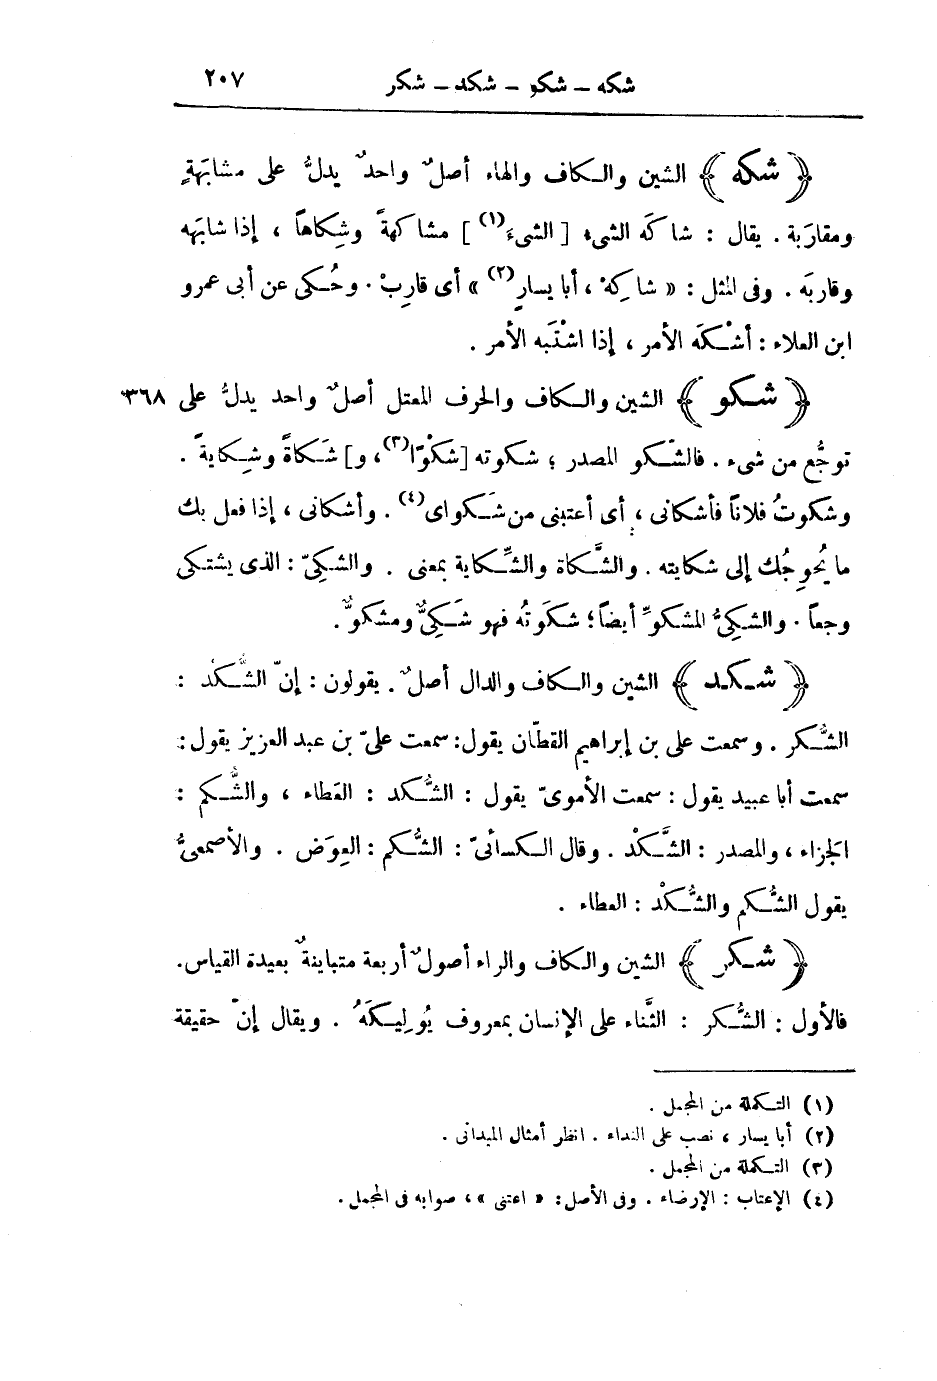 شكه – شكو – شكد – شكر ٢٠٧
﴿ شكه ﴾ الشين والكاف والهاء أصلٌ واحدٌ يدلُّ على مشابَهةٍ
ومقارَبة . يقال : شاكَه الشىء [ الشىءَ(١) ] مشاكهةً وشِكاهاً ، إذا شابَهه
وقاربَه . وفى المثل : « شاكِهْ ، أبا يسارٍ(٢) » أى قارِبْ . وحُكى عن أبى عمرو
ابن العلاء : أشْكَه الأمر ، إذا اشْتَبه الأمر .
﴿ شكو ﴾ الشين والكاف والحرف المعتل أصلٌ واحد يدلُّ على ٣٦٨
توجُّع من شىء . فالشَّكو المصدر ؛ شكوته [شكْوًا(٣)، و] شَكاةً وشِكايةً .
وشكوتُ فلاناً فأشكانى ، أى أعتبنى من شَكواى(٤) . وأشكانى ، إذا فعل بك
ما يُحوِجُك إلى شكايته . والشَّكاة والشِّكاية بمعنى . والشكِىّ : الذى يشتكى
وجعاً . والشكِىُّ المشكوّ أيضاً ؛ شكَوتُه فهو شَكِىٌّ ومشكوٌّ .
﴿ شكد ﴾ الشين والكاف والدال أصلٌ . يقولون : إنّ الشُّكْد :
الشُّكر . وسمعت على بن إبراهيم القطّان يقول : سمعت علىّ بن عبد العزيز يقول :
سمعت أبا عبيد يقول : سمعت الأموىّ يقول : الشُّكد : العَطاء ، والشُّكم :
الجزاء ، والمصدر : الشَّكْد . وقال الكسائىّ : الشُّكم : العِوَض . والأصمعىُّ
يقول الشُّكم والشُّكْد : العطاء .
﴿ شكر ﴾ الشين والكاف والراء أصولٌ أربعة متباينةٌ بعيدة القياس .
فالأول : الشُّكر : الثَّناء على الإنسان بمعروف يُولِيكَهُ . ويقال إنّ حقيقة
(١) التكملة من المجمل .
(٢) أبا يسار ، نصب على النداء . انظر أمثال الميدانى .
(٣) التكملة من المجمل .
(٤) الإعتاب : الإرضاء . وفى الأصل : « اعتنى » ، صوابه فى المجمل .